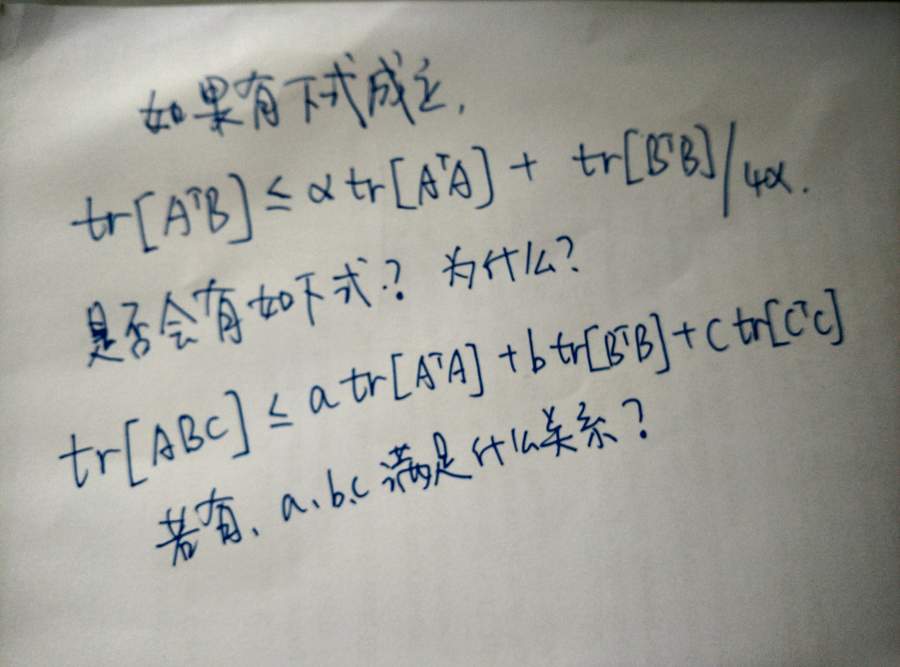 如果有下式成立,
tr[AᵀB] ≤ α tr[AᵀA] + tr[BᵀB]/4α.
是否会有如下式? 为什么?
tr[ABC] ≤ a tr[AᵀA] + b tr[BᵀB] + c tr[CᵀC]
若有、a、b、c 满足什么关系?